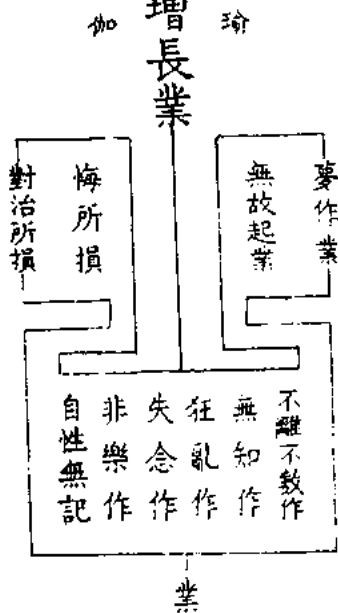 瑜
伽
增長業
夢作業
無故起業
悔所損
對治所損
不離不數作
無知作
狂亂作
失念作
非樂作
自性無記
業